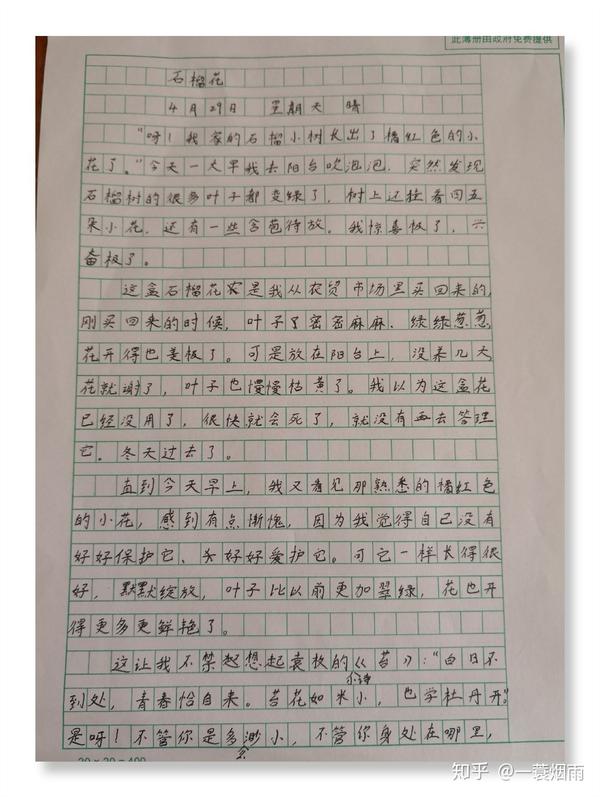 此簿册由政府免费提供
石榴花
4月29日 星期天 晴
“呀！我家的石榴小树长出了橘红色的小
花了。”今天一大早我去阳台吹泡泡，突然发现
石榴树的很多叶子都变绿了，树上还挂着四五
朵小花，还有一些含苞待放。我惊喜极了，兴
奋极了。
这盆石榴花是我从农贸市场里买回来的，
刚买回来的时候，叶子密密麻麻、绿绿葱葱
花开得也美极了。可是放在阳台上，没养几天
花就谢了，叶子也慢慢枯黄了。我以为这盆花
已经没用了，很快就会死了，就没有再去管理
它。冬天过去了。
直到今天早上，我又看见那熟悉的橘红色
的小花，感到有点惭愧，因为我觉得自己没有
好好保护它、好好爱护它。可它一样长得很
好，默默绽放，叶子比以前更加翠绿，花也开
得更多更鲜艳了。
这让我不禁想起袁枚的小诗《苔》：“白日不
到处，青春恰自来。苔花如米小，也学牡丹开。”
是呀！不管你是多么渺小，不管你身处在哪里，
20×20=400
知乎 @一蓑烟雨